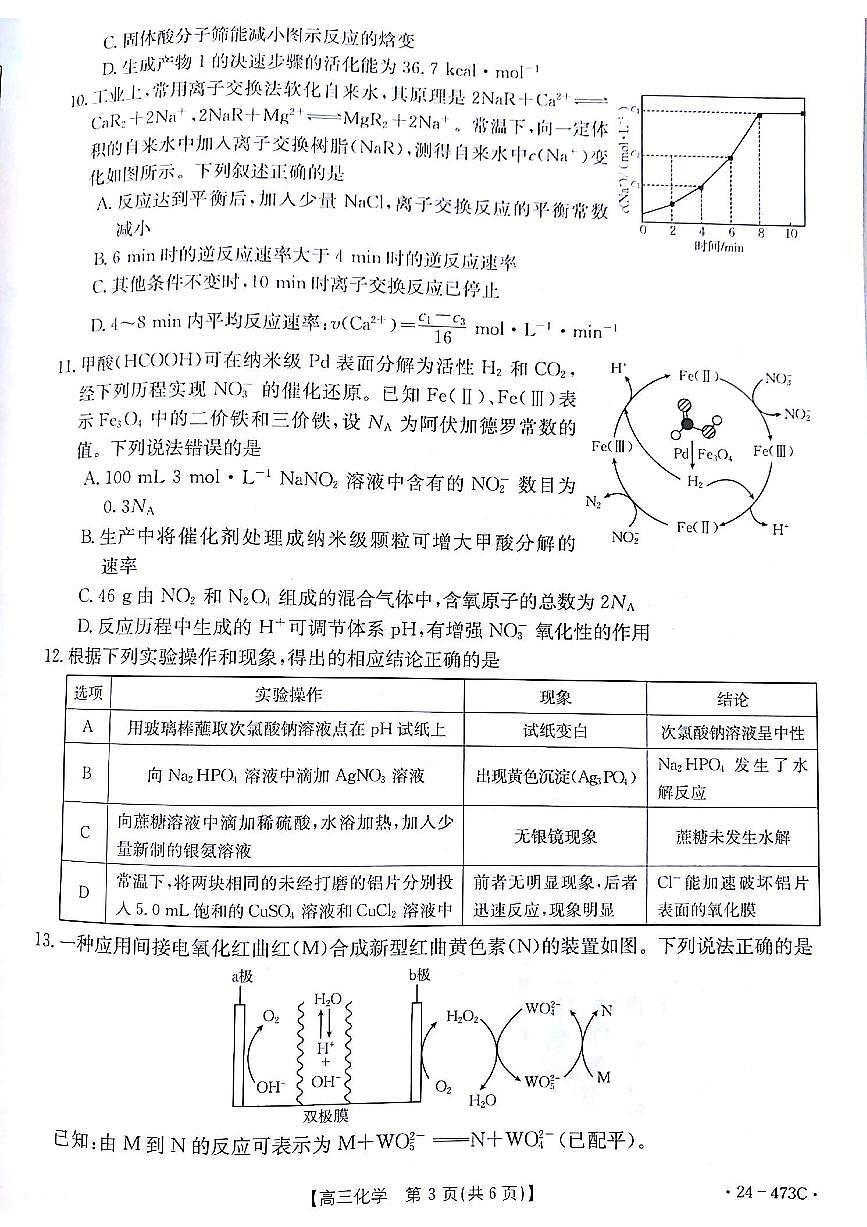 C. 固体酸分子筛能减小图示反应的焓变
D. 生成产物 1 的决速步骤的活化能为 36.7 kcal·mol⁻¹
10. 工业上,常用离子交换法软化自来水,其原理是 2NaR+Ca²⁺⇌
CaR₂+2Na⁺,2NaR+Mg²⁺⇌MgR₂+2Na⁺。常温下,向一定体
积的自来水中加入离子交换树脂(NaR),测得自来水中c(Na⁺)变
化如图所示。下列叙述正确的是
A. 反应达到平衡后,加入少量 NaCl,离子交换反应的平衡常数
减小
B. 6 min 时的逆反应速率大于 4 min 时的逆反应速率
C. 其他条件不变时,10 min 时离子交换反应已停止
D. 4~8 min 内平均反应速率:v(Ca²⁺)=(c₁-c₃)/16 mol·L⁻¹·min⁻¹
0 2 4 6 8 10
时间/min
11. 甲酸(HCOOH)可在纳米级 Pd 表面分解为活性 H₂ 和 CO₂,
经下列历程实现 NO₃⁻ 的催化还原。已知 Fe(Ⅱ)、Fe(Ⅲ)表
示 Fe₃O₄ 中的二价铁和三价铁,设 Nₐ 为阿伏加德罗常数的
值。下列说法错误的是
A. 100 mL 3 mol·L⁻¹ NaNO₂ 溶液中含有的 NO₂⁻ 数目为
0.3Nₐ
B. 生产中将催化剂处理成纳米级颗粒可增大甲酸分解的
速率
C. 46 g 由 NO₂ 和 N₂O₄ 组成的混合气体中,含氧原子的总数为 2Nₐ
D. 反应历程中生成的 H⁺可调节体系 pH,有增强 NO₃⁻ 氧化性的作用
H⁺ Fe(Ⅱ) NO₃⁻
NO₂⁻
Fe(Ⅲ) Pd Fe₃O₄ Fe(Ⅲ)
H₂
N₂
NO₂⁻ Fe(Ⅱ) H⁺
12. 根据下列实验操作和现象,得出的相应结论正确的是
选项 实验操作 现象 结论
A 用玻璃棒蘸取次氯酸钠溶液点在 pH 试纸上 试纸变白 次氯酸钠溶液呈中性
B 向 Na₂HPO₄ 溶液中滴加 AgNO₃ 溶液 出现黄色沉淀(Ag₃PO₄) Na₂HPO₄ 发生了水
解反应
C 向蔗糖溶液中滴加稀硫酸,水浴加热,加入少
量新制的银氨溶液 无银镜现象 蔗糖未发生水解
D 常温下,将两块相同的未经打磨的铝片分别投 前者无明显现象,后者 Cl⁻ 能加速破坏铝片
入 5.0 mL 饱和的 CuSO₄ 溶液和 CuCl₂ 溶液中 迅速反应,现象明显 表面的氧化膜
13. 一种应用间接电氧化红曲红(M)合成新型红曲黄色素(N)的装置如图。下列说法正确的是
a极 b极
O₂ H₂O H₂O₂ WO₄²⁻ N
H⁺
+
OH⁻ OH⁻ O₂ WO₅²⁻ M
H₂O
双极膜
已知:由 M 到 N 的反应可表示为 M+WO₅²⁻══N+WO₄²⁻(已配平)。
【高三化学 第 3 页(共 6 页)】
·24-473C·